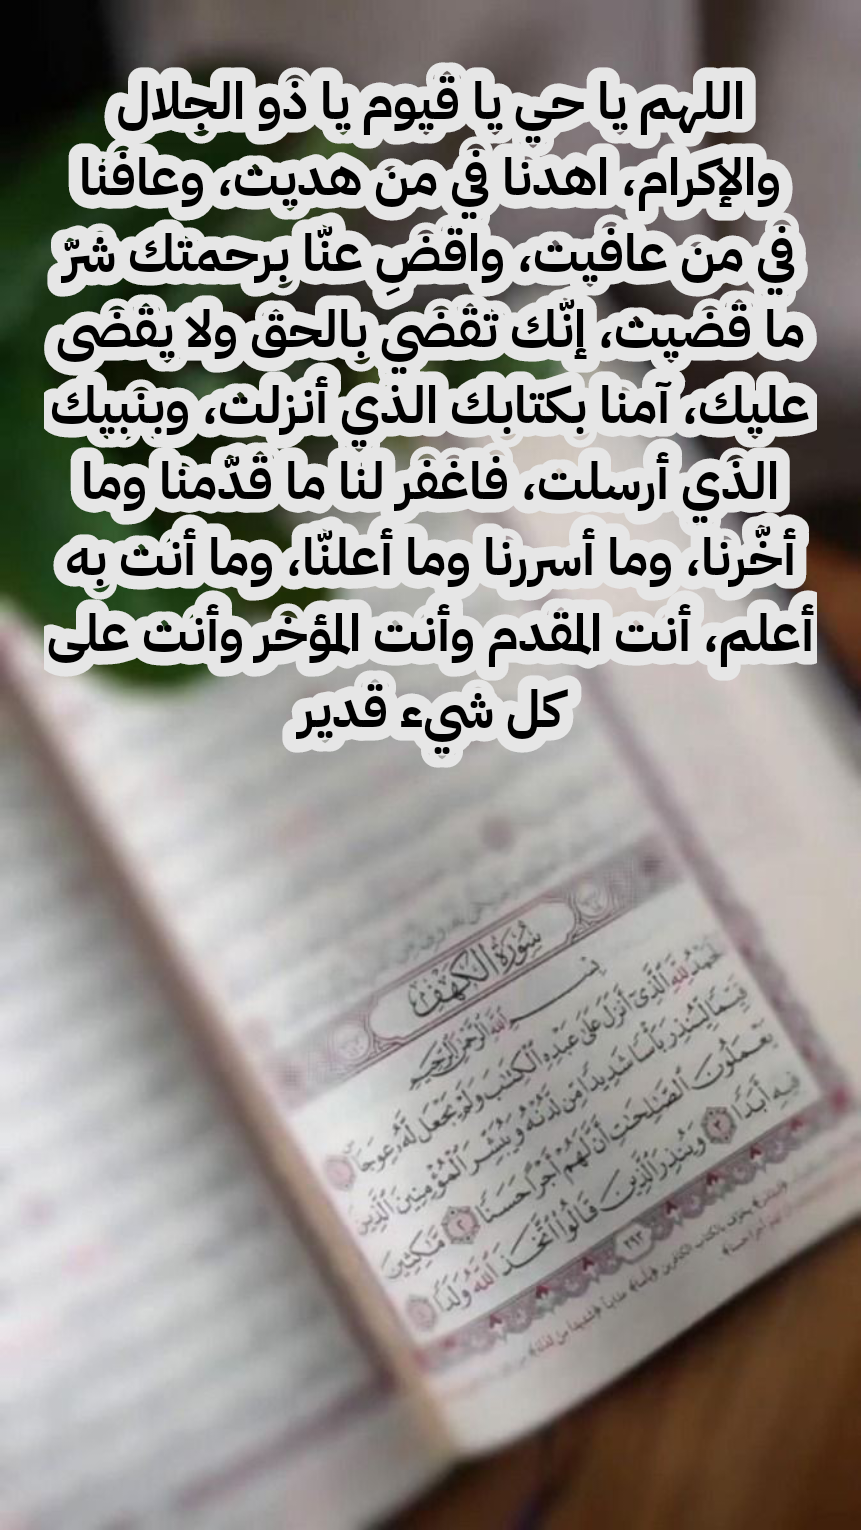 اللهم يا حي يا قيوم يا ذو الجلال
والإكرام، اهدنا في من هديت، وعافنا
في من عافيت، واقضِ عنّا برحمتك شرّ
ما قضيت، إنّك تقضي بالحق ولا يقضى
عليك، آمنا بكتابك الذي أنزلت، وبنبيك
الذي أرسلت، فاغفر لنا ما قدّمنا وما
أخّرنا، وما أسررنا وما أعلنّا، وما أنت به
أعلم، أنت المقدم وأنت المؤخر وأنت على
كل شيء قدير
سُورَةُ الكَهْفِ
بِسْمِ اللَّهِ الرَّحْمَٰنِ الرَّحِيمِ
لِلَّهِ الَّذِي أَنزَلَ عَلَىٰ عَبْدِهِ الْكِتَابَ وَلَمْ يَجْعَل لَّهُ عِوَجًا
قَيِّمًا لِّيُنذِرَ بَأْسًا شَدِيدًا مِّن لَّدُنْهُ وَيُبَشِّرَ الْمُؤْمِنِينَ الَّذِينَ
يَعْمَلُونَ الصَّالِحَاتِ أَنَّ لَهُمْ أَجْرًا حَسَنًا ٢ مَّاكِثِينَ
فِيهِ أَبَدًا ٣ وَيُنذِرَ الَّذِينَ قَالُوا اتَّخَذَ اللَّهُ وَلَدًا
٢٩٣